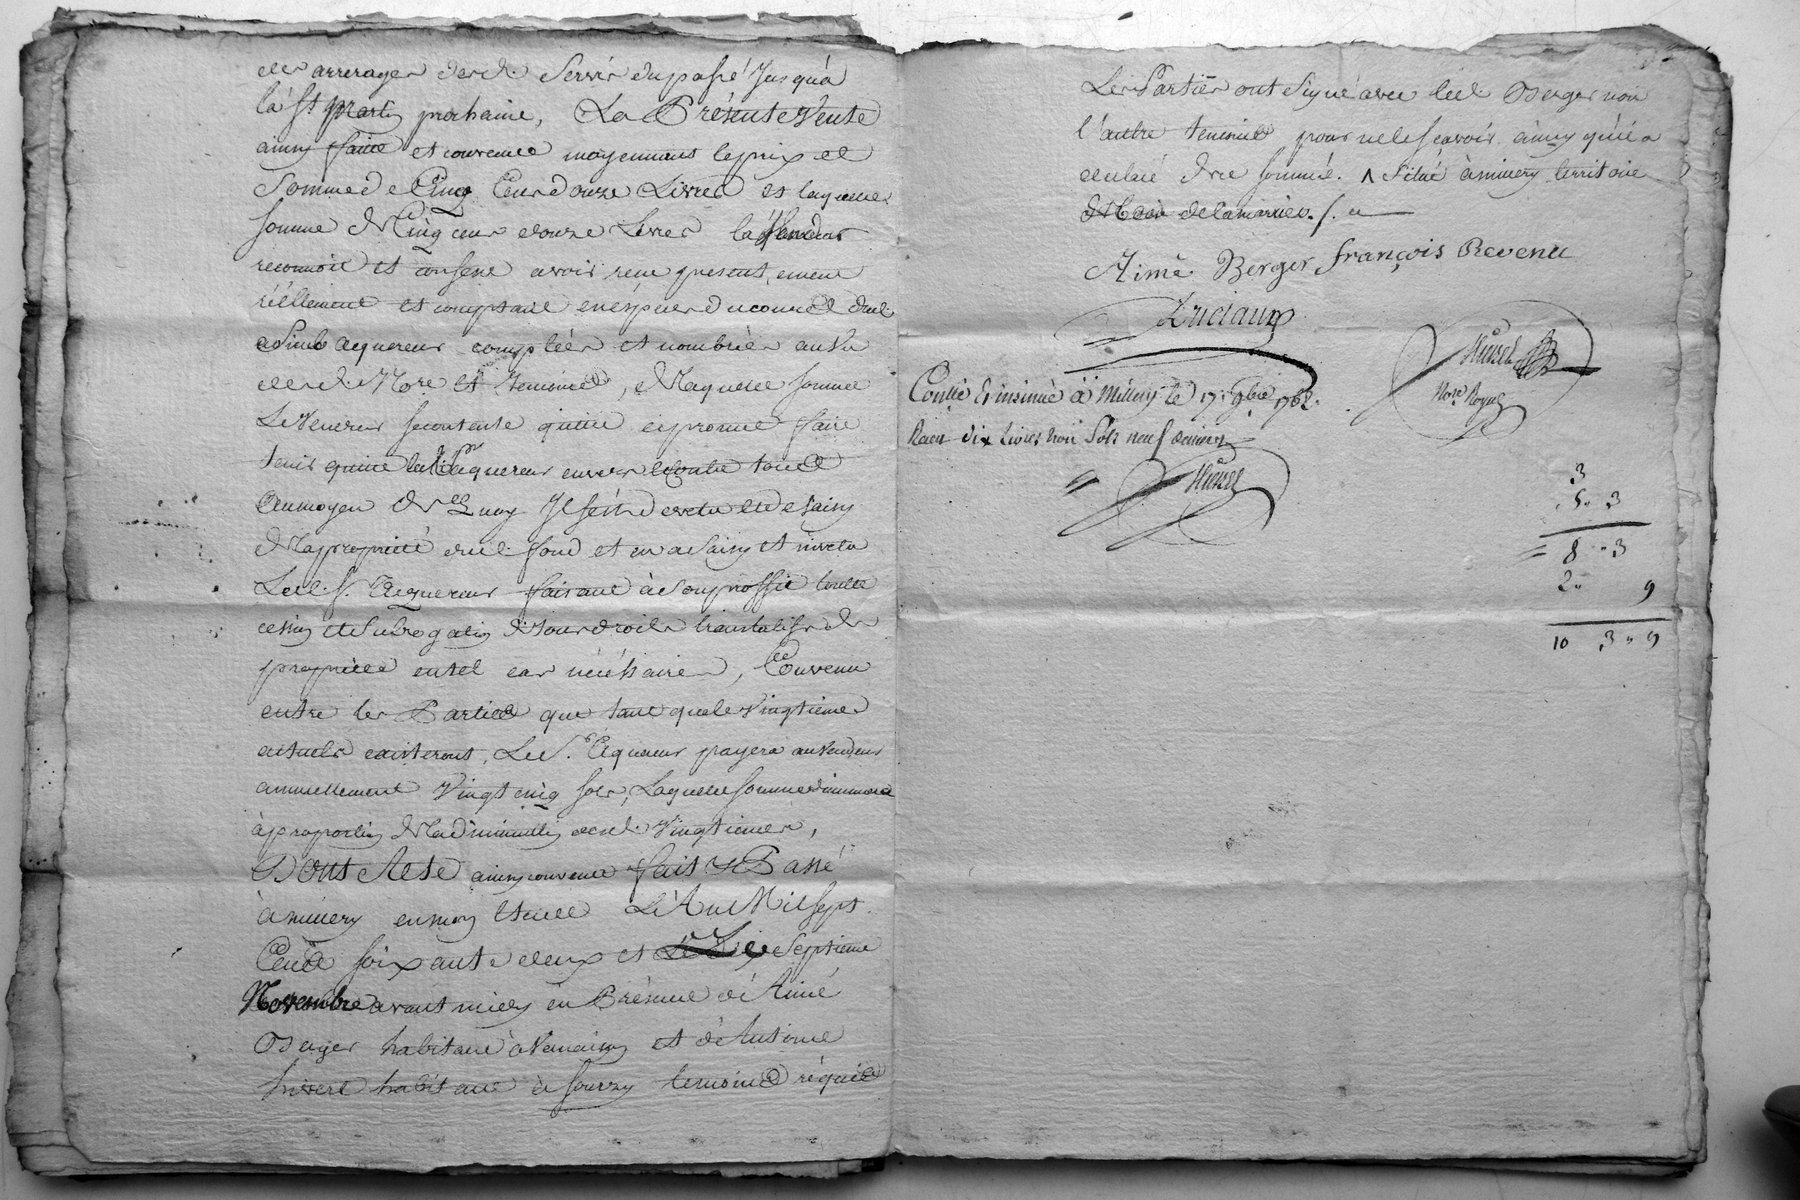 des arrerages desd. Servis du passé Jusqu'a
la St Martin prochaine, La Présente Vente
ainsy faite et convenue moyennant le prix et
Somme de Cinq Cens douze Livres et laquelle
somme de Cinq cens douze Livres le Vendeur
reconnoit et confesse avoir recu presentement
réellement et comptant en espèces du cours dud.
acquereur comptées et nombrées au Vu
desd. Nore et Temoins, de laquelle somme
Le Vendeur se contente quitte et promet faire
tenir quitte led. Sr acquereur envers et contre tous
Au moyen de quoy Il s'est devetu et desaisy
de la propriété dud. fond et en a saisy et invetu
Led. Sr. Acquereur faisant à son proffit toutte
cession et subrogation de tous droits translatifs de
propriété en tel cas nécéssaires, Convenu
entre les Parties que tant que les Vingtiemes
actuels existeront, Le Sr. Aquereur payera au Vendeur
annuellement Vingt cinq sols, Laquelle somme diminuera
à proportion de la diminution desd. Vingtiemes,
Dont Acte ainsy convenu fait et Passé
à milery en mon Etude L'An Mil sept
Cens soixante deux et Le Dix Septieme
Novembre avant midy en Présence de Aimé
Berger habitant à et de Antoine
habitant à Sourzy temoins réquis
Les Parties ont Signé avec led Berger non
l'autre temoin pour ne le scavoir ainsy qu'il a
declaré de ce sommé. ʌ Situé à milery territoire
Aimé Berger françois Revenu
Druiaux
Hivert
Nore Royal
Conllé Et insinué a Millery le 17e 9bre 1762.
Recu dix Livres trois Sols neuf deniers
Hivert
3
5 " 3
8 " 3
2 " 9
10 3 " 9